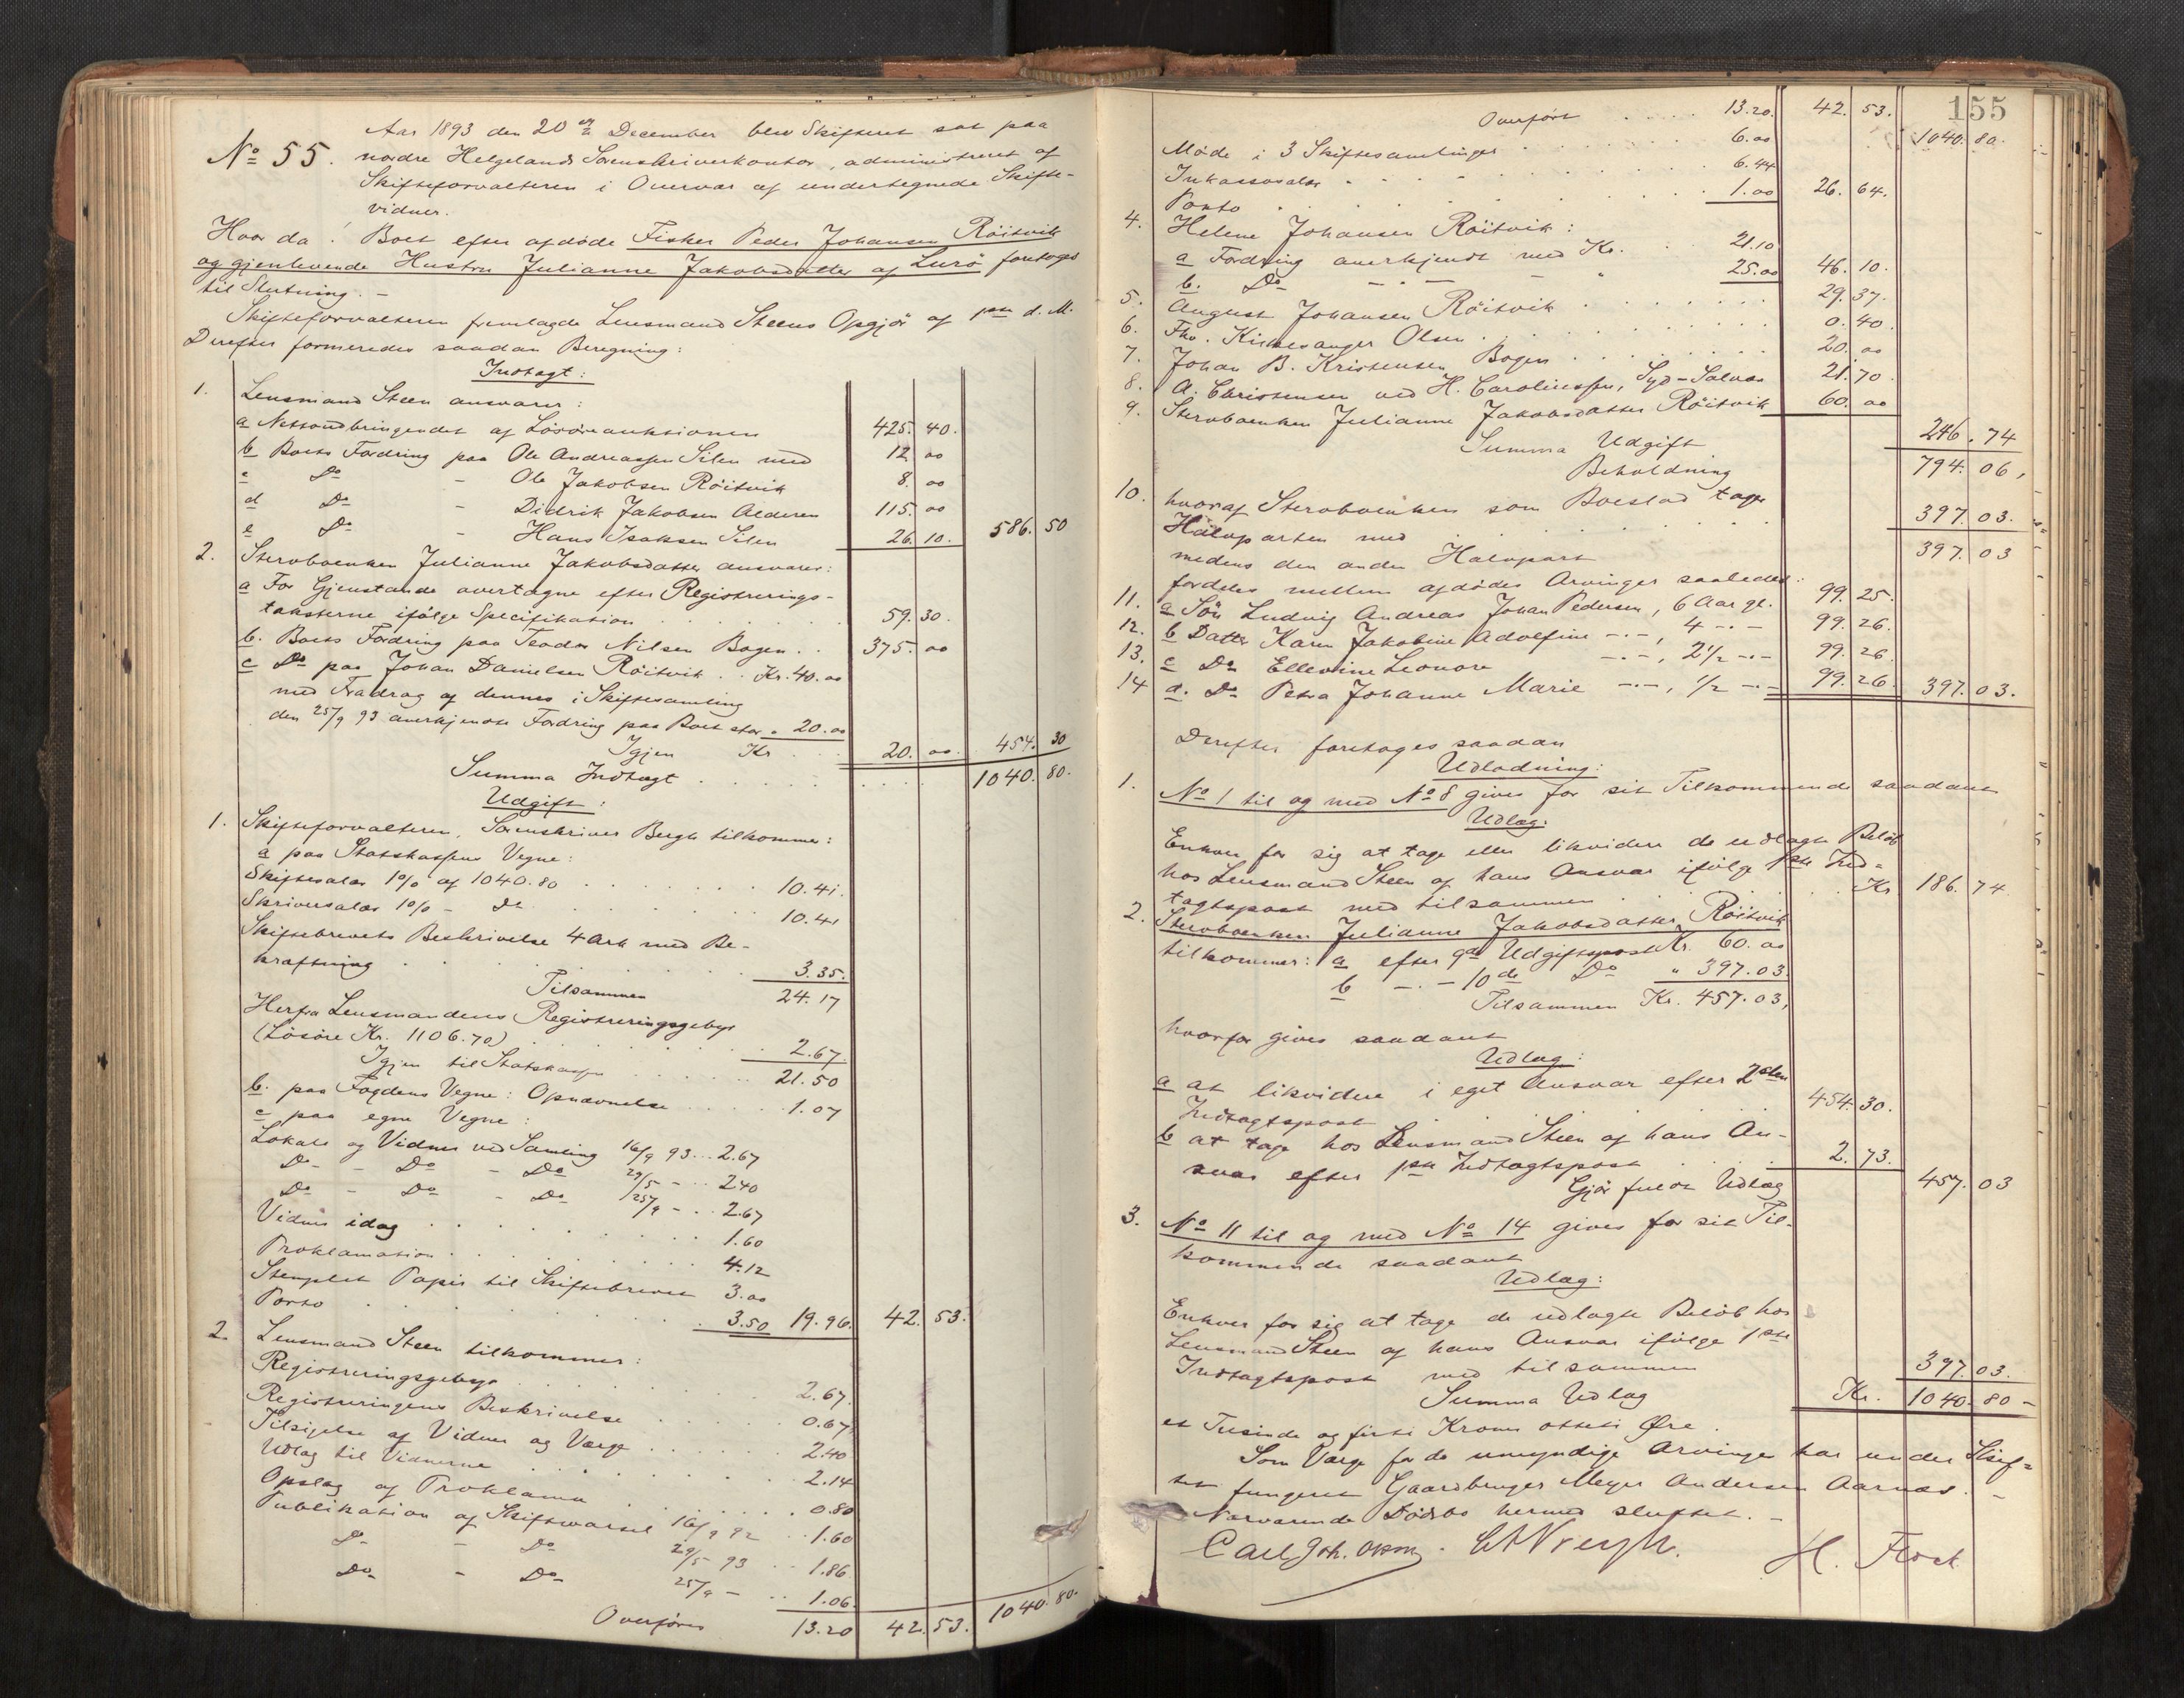 Aar 1893 den 20de December blev Skifteret sat paa
No 55. nordre Helgelands Sorenskriverkontor, administreret af
Skifteforvalteren i Overvær af undertegnede Skifte-
vidner.
Hvor da: Boet efter afdøde Fisker Peder Johansen Röitvik
og gjenlevende Hustru Julianne Jakobsdatter af Lurö foretoges
til Slutning. -
Skifteforvalteren fremlagde Lensmand Steens Opgjör af 1ste d. M.
Derefter formeredes saadan Beregning:
Indtægt:
1. Lensmand Steen ansvarer:
a Nettoudbringendet af Lösöreauktionen 425. 40.
b Boets Fordring paa Ole Andreassen Silen med 12. 00
c Do - Ole Jakobsen Röitvik 8. 00
d Do - Didrik Jakobsen Alderen 115. 00
e Do - Hans Isaksen Silen 26. 10. 586. 50
2. Sterboenken Julianne Jakobsdatter ansvarer:
a For Gjenstande overtagne efter Registrerings-
taksterne ifölge Specifikation . . . 59. 30.
b. Boets Fordring paa Teodor Nilsen Bogen . . 375. 00
c Do paa Johan Danielsen Röitvik . . Kr. 40. 00
med Fradrag af dennes i Skiftesamling
den 25/9 93 anerkjendte Fordring paa Boet stor " 20. 00
Igjen Kr 20. 00. 454. 30
Summa Indtægt . . . . 1040. 80.
Udgift:
1. Skifteforvalteren, Sorenskriver Bergh tilkommer:
a paa Statskassens Vegne:
Skiftesalær 1% af 1040.80 . . . 10.41.
Skriversalær 1% - Do . . . 10.41
Skiftebrevets Beskrivelse 4 Ark med Be-
kræftning . . . 3.35.
Tilsammen 24.17
Herfra Lensmandens Registreringsgebyr
(Lösöre Kr. 1106.70) . . . 2.67.
Igjen til Statskassen . . . 21.50
b. paa Fogdens Vegne: Opnævnelse . . . 1.07
c paa egne Vegne:
Lokale og Vidner ved Samling 16/9 93 . . 2.67
Do - Do - Do 29/5 - . . 2.40
Do - Do - Do 25/9 - . . 2.67
Vidner idag . . . 1.60
Proklamation . . . 4.12
Stemplet Papir til Skiftebrevet 3.00
Porto . . . 3.50 19.96. 42. 53.
2. Lensmand Steen tilkommer:
Registreringsgebyr . . . 2.67.
Registreringens Beskrivelse . . . 0.67
Tilsigelse af Vidner og Værge . . . 2.40
Udlæg til Vidnerne . . . 2.14
Opslag af Proklama . . . 0.80
Publikation af Skiftevarsel 16/9 92 . . 1.60
Do - Do 29/5 93 . . 1.86
Do - Do 25/9 - . . 1.06.
Overføres 13.20 42. 53. 1040. 80.
155
Overfört . . . 13.20. 42. 53. 1040. 80.
Möde i 3 Skiftesamlinger . . . 6.00
Inkassosalær . . . 6.44
Porto . . . 1.00 26. 64.
4. Helene Johansen Röitvik:
a Fordring anerkjendt med Kr. 21.10
b. Do - . - " 25.00 46. 10.
5. August Johansen Röitvik . . . 29. 37.
6. Fhv. Kirkesanger Olsen . . . 0. 40.
7. Johan B. Kristensen Bogen . . . 20. 00
8. A. Christensen ved H. Carolinssen, Syd-Solvær 21. 70.
9. Sterboenken Julianne Jakobsdatter Röitvik 60. 00
Summa Udgift 246. 74
Beholdning 794. 06,
10. hvoraf Sterboenken som Boeslod tager
Halvparten med . . . 397. 03.
medens den anden Halvpart 397. 03
fordeles mellem afdödes Arvinger saaledes:
11. a Sön Ludvig Andreas Johan Pedersen, 6 Aar gl. 99. 25.
12. b Datter Karen Jakobine Adolfine -.-, 4 -.- 99. 26.
13. c Do Ellevine Leonore -.-, 2 1/2 -.- 99. 26
14 d. Do Petra Johanne Marie -.-, 1/2 -.- 99. 26. 397. 03.
Derefter foretages saadan
Udlodning:
1. No 1 til og med No 8 gives for sit Tilkommende saadant
Udlæg:
Enhver for sig at tage eller likvidere de udlagte Beløb
hos Lensmand Steen af hans Ansvar ifølge 1ste Ind-
tægtspost med tilsammen . . . Kr 186. 74
2. Sterboenken Julianne Jakobsdatter Röitvik
tilkommer: a efter 9de Udgiftspost Kr. 60.00
b -.- 10de Do " 397.03.
Tilsammen Kr. 457.03,
hvorfor gives saadant
Udlæg:
a at likvidere i eget Ansvar efter 2den
Indtægtspost . . . 454. 30.
b at tage hos Lensmand Steen af hans An-
svar efter 1ste Indtægtspost . . . 2. 73.
Gjör fuldt Udlæg 457. 03
3. No 11 til og med No 14 gives for sit Til-
kommende saadant
Udlæg:
Enhver for sig at tage de udlagte Beløb hos
Lensmand Steen af hans Ansvar ifølge 1ste
Indtægtspost med tilsammen 397. 03.
Summa Udlæg Kr. 1040. 80 -
et Tusinde og firti Kroner otteti Øre.
Som Værge for de umyndige Arvinger har under Skif-
tet fungeret Gaardbruger Meyer Andersen Aarnæs. -
Nærværende Dødsbo hermed sluttet. -
Carl Joh. Olsen. H. Flock